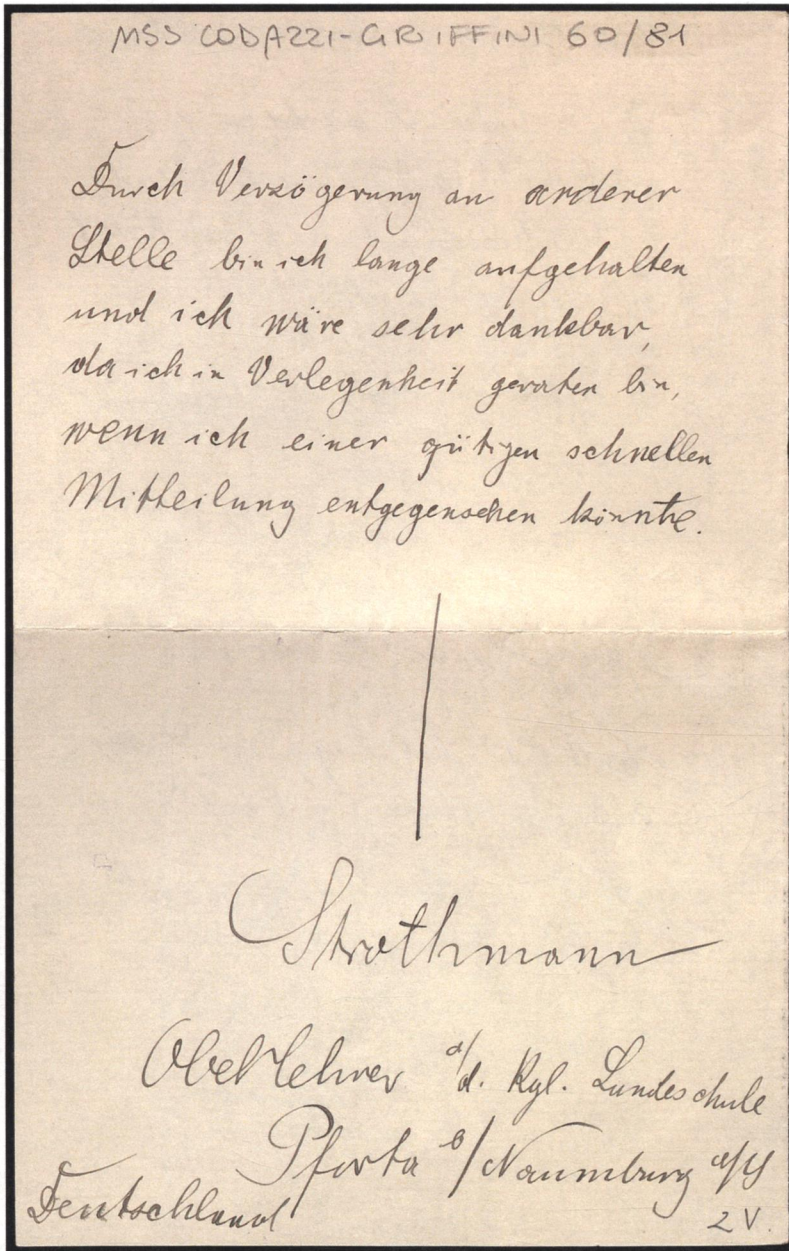 MSS CODAZZI-GRIFFINI 60/81
Durch Verzögerung an anderer
Stelle bin ich lange aufgehalten
und ich wäre sehr dankbar,
da ich in Verlegenheit geraten bin,
wenn ich einer gütigen schnellen
Mittheilung entgegensehen könnte.
Strothmann
Oberlehrer a/d. Kgl. Landesschule
Pforta b/Naumburg a/S
Deutschland
2 V.